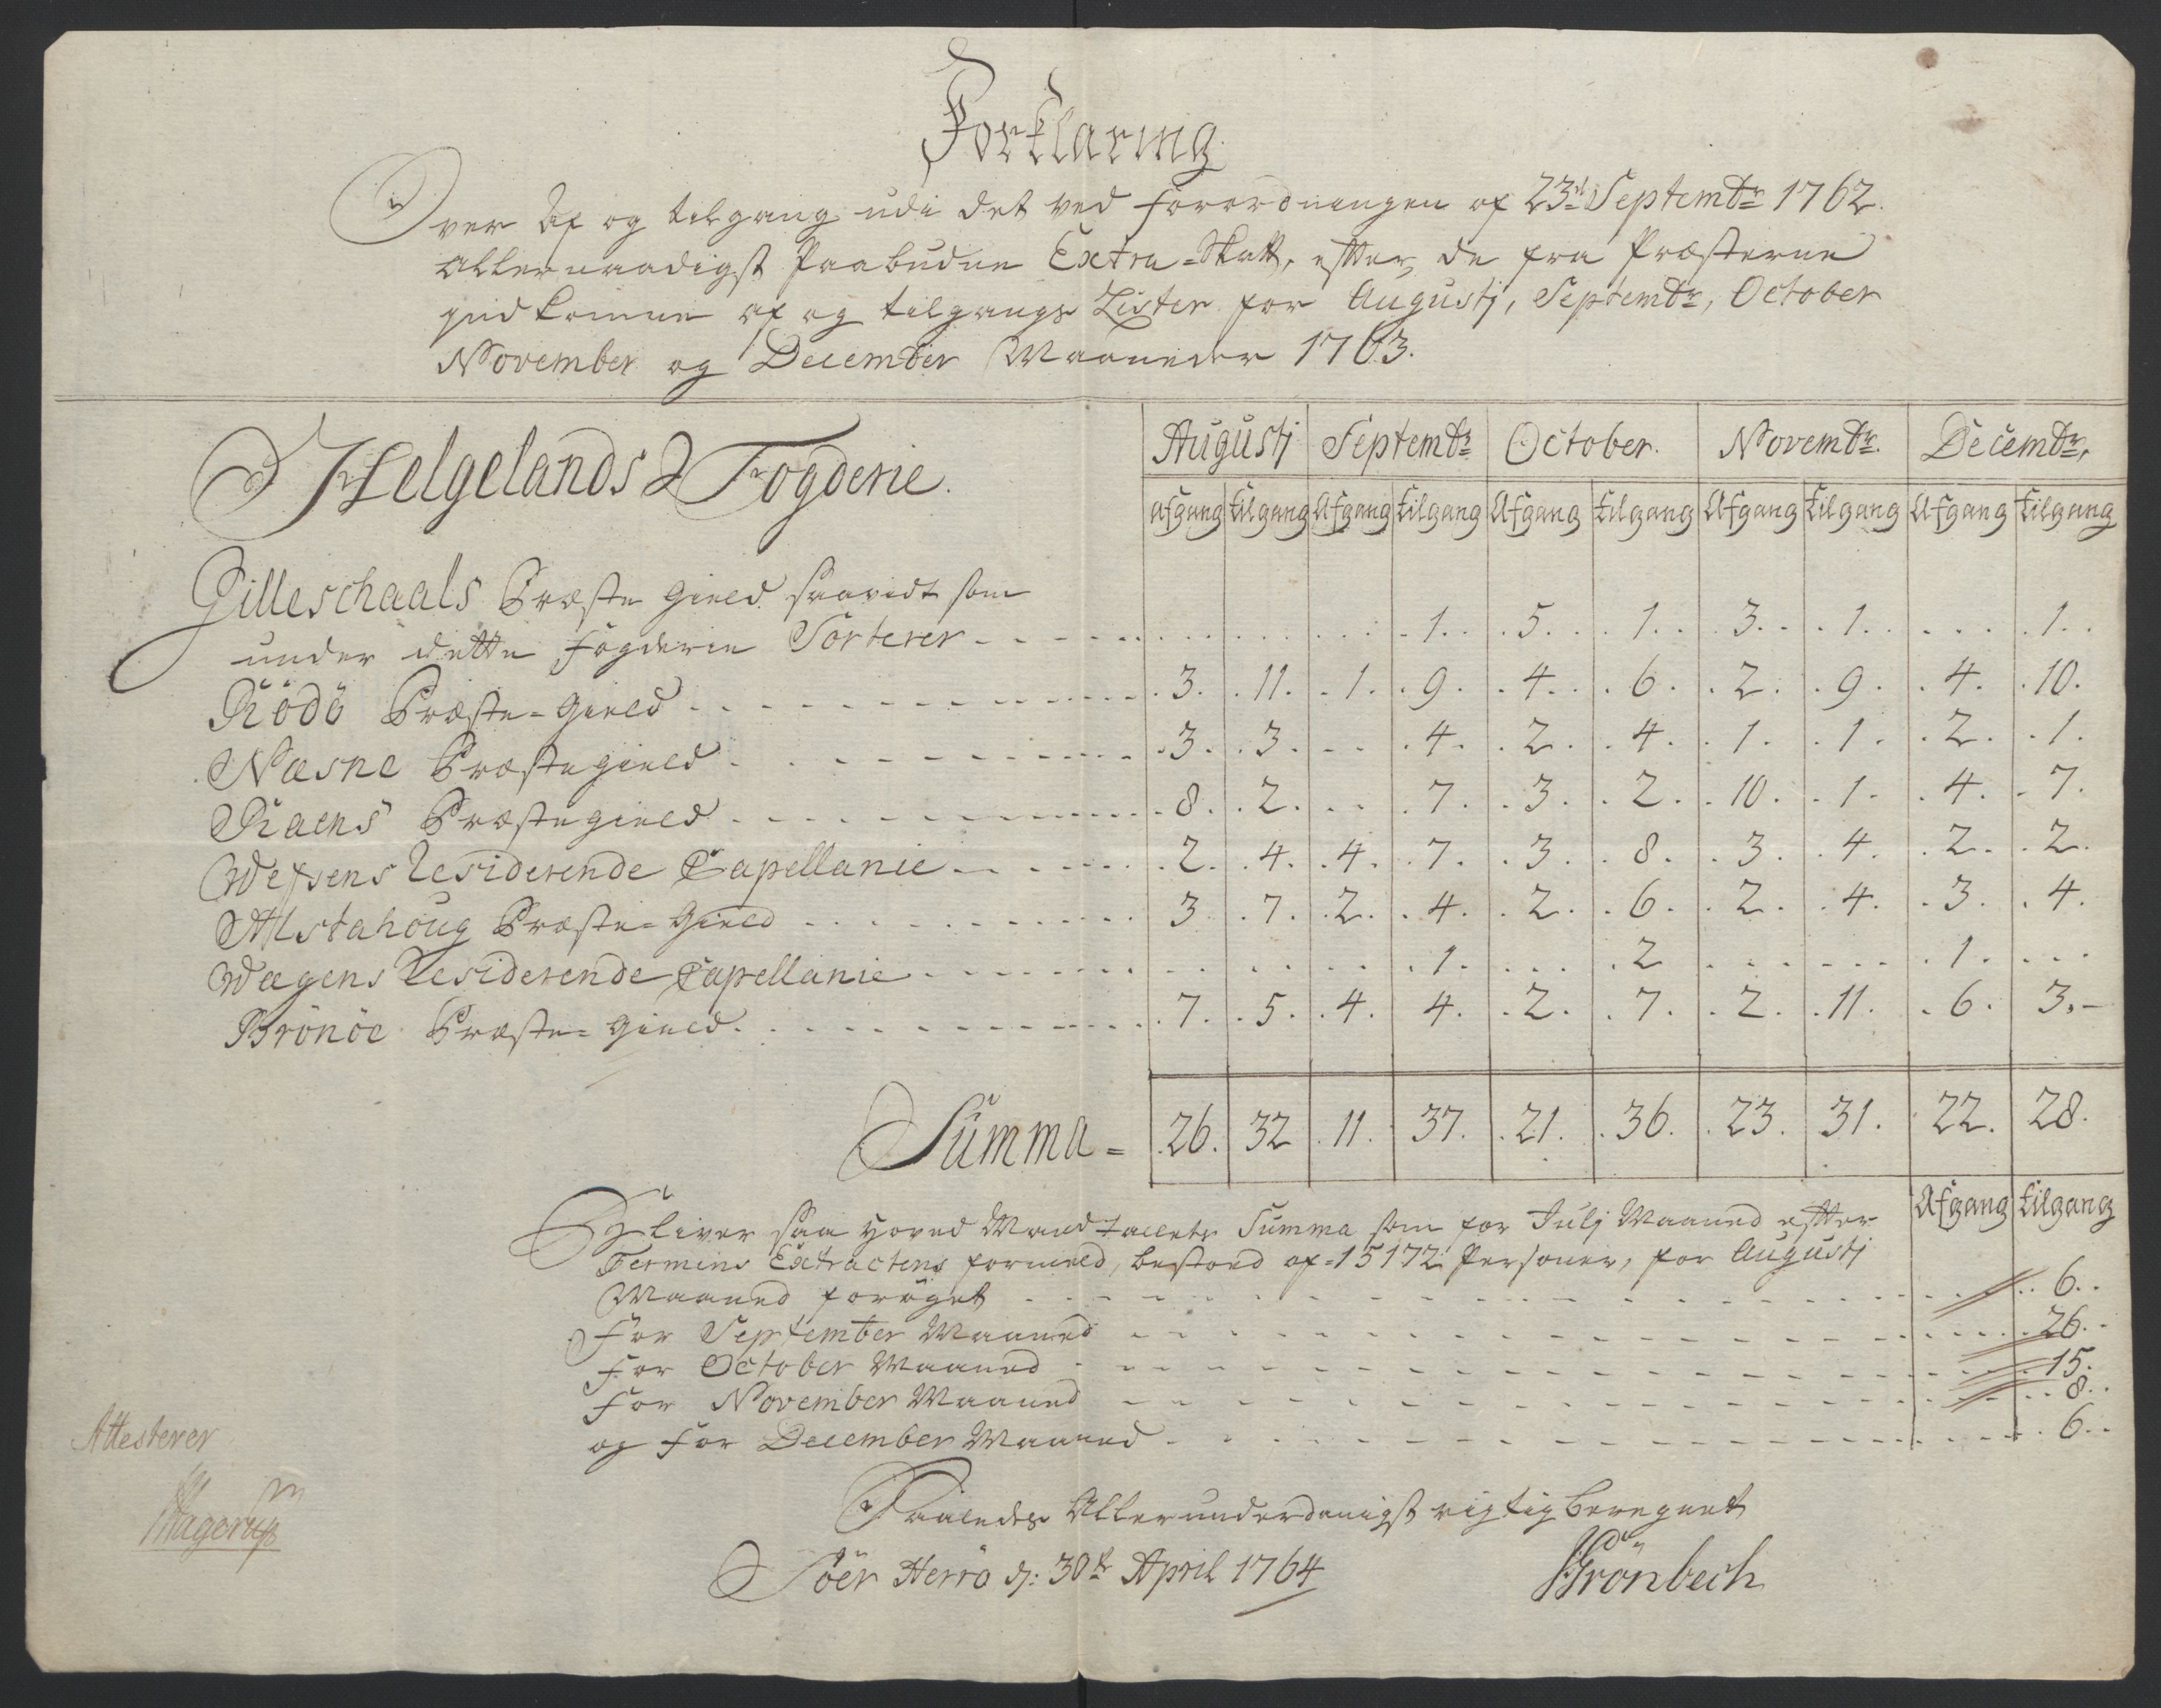 Forklaring
Over Af og tilgang udi det ved Forordningen af 23d Septembr 1762.
Allernaadigst Paabudne Extra-Skatt, efter de fra Præsterne
indkomne af og tilgangs Lister for Augustj, Septembr, October
November og December Maaneder 1763.
Helgelands Fogderie.
Augustj Septembr October. Novembr. Decembr,
Afgang tilgang Afgang tilgang Afgang tilgang Afgang tilgang Afgang tilgang
Gilleschaals Præste Gield saavidt som
under dette Fogderie Sorterer - - - - . . . . . . . . 1. . 5. . 1. . 3. . 1. . . . . 1. .
Rödö Præste-Gield - - - - . 3. . 11. . 1. . 9. . 4. . 6. . 2. . 9. . 4. . 10.
Næsne Præstegield - - - - . 3. . 3. - - . 4. . 2. . 4. . 1. . 1. . 2. . 1.
Raens Præstegield - - - - . 8. . 2. . . . 7. . 3. . 2. . 10. . 1. . 4. . 7.
Wefsens Residerende Capellanie - - - - . 2. . 4. . 4. . 7. . 3. . 8. . 3. . 4. . 2. . 2.
Alstahoug Præste-Gield - - - - 3 . 7. . 2. . 4. . 2. . 6. . 2. . 4. . 3. . 4.
Wægens Residerende Capellanie - - - - . . . . . . . 1. . . . . 2 . . . . . . . 1. . . .
Brönöe Præste-Gield. - - - - . 7. . 5. . 4. 4. . 2. . 7. . 2. . 11. . 6. 3. -
Summa = 26. 32 . 11. 37. . 21. . 36. . 23. 31. 22. 28.
Afgang tilgang
Bliver saa hoved Mandtallets Summa som for Julj Maaned efter
Termins Extractens formeld, bestoed af = 15172 Personer, for Augustj
Maaned forøget - - - - 6. .
For September Maaned - - - - 26. .
For October Maaned - - - - 15.
For November Maaned - - - - 8. .
og For December Maaned - - - - 6. .
Saaledes Allerunderdanigst rigtig beregnet
Söer Herrö d: 30te April 1764
Grönbech
Attesterer
Hagerup